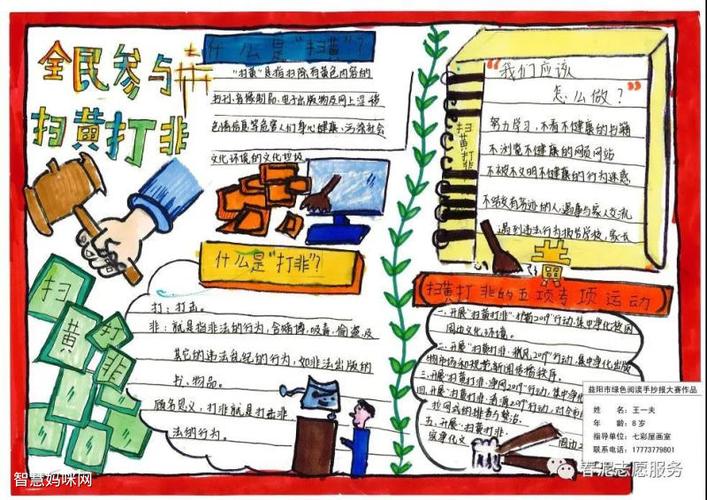 全民参与
扫黄打非
什么是“扫黄”？
“扫黄”是指扫除有黄色内容的
书刊、音像制品、电子出版物及网上淫秽
色情信息等危害人们身心健康、污染社会
文化环境的文化垃圾
什么是“打非”？
打：打击。
非：就是指非法的行为，含赌博，吸毒，偷盗及
其它的违法乱纪的行为，如非法出版的
书、物品。
顾名思义，打非就是打击非
法的行为。
扫
黄
打
非
扫黄打非
“我们应该
怎么做？”
努力学习，不看不健康的书籍
不浏览不健康的网页网站
不被不文明不健康的行为迷惑
不结交有劣迹的人，遇事与家人交流
遇到违法行为报告学校，家长
黄
扫黄打非的五项专项运动
一、开展“扫黄打非·护苗2019”行动，集中净化校园
周边文化环境。
二、开展“扫黄打非·秋风2019”行动，集中净化出版
物市场和视觉新闻传播秩序。
三、开展“扫黄打非·净网2019”行动，集中净化
四、开展“扫黄打非·清源2019”行动，对
五、开展“扫黄打非·
益阳市绿色阅读手抄报大赛作品
姓 名：王一夫
年 龄：8岁
指导单位：七彩屋画室
联系电话：17773779801
春泥志愿服务
智慧妈咪网